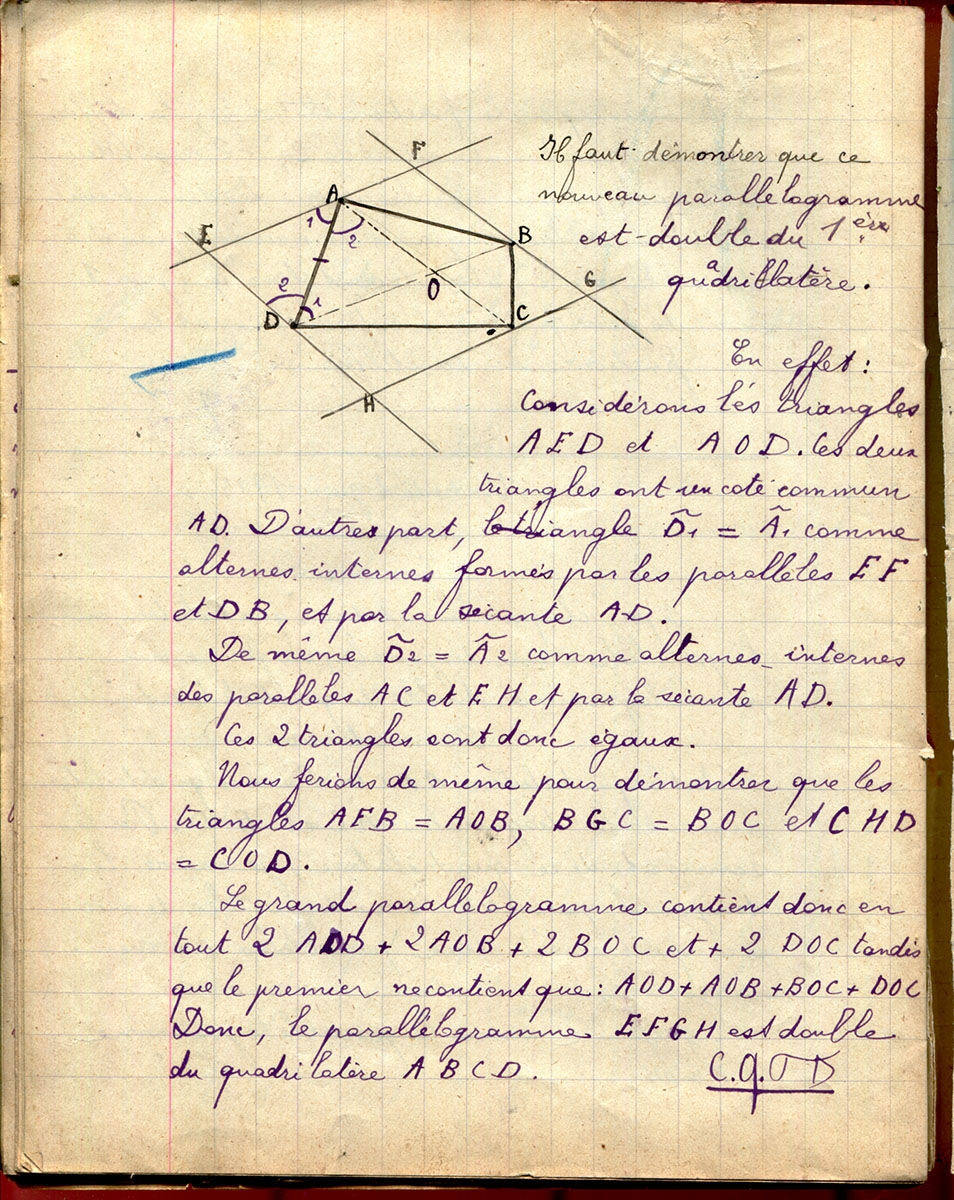 F
A
1
2
E
B
G
2
O
1
D
C
H
Il faut démontrer que ce
nouveau parallélogramme
est double du 1er
quadrilatère.
En effet :
Considérons les triangles
AED et AOD. Ces deux
triangles ont un coté commun
AD. D'autres part, le triangle D̃1 = Ã1 comme
alternes internes formés par les parallèles EF
et DB, et par la sécante AD.
De même D̃2 = Ã2 comme alternes-internes
des parallèles AC et EH et par la sécante AD.
Ces 2 triangles sont donc égaux.
Nous ferions de même pour démontrer que les
triangles AFB = AOB, BGC = BOC et CHD
= COD.
Le grand parallélogramme contient donc en
tout 2 AOD + 2 AOB + 2 BOC et + 2 DOC tandis
que le premier ne contient que : AOD + AOB + BOC + DOC
Donc, le parallélogramme EFGH est double
du quadrilatère ABCD.
C.Q.F.D